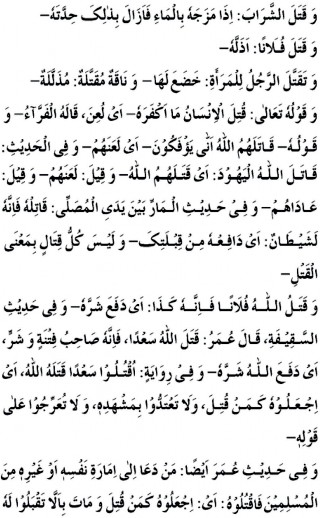 وَ قَتَلَ الشَّرَابَ: اِذَا مَزَجَهٗ بِالْمَاءِ فَاَزَالَ بِذٰلِکَ حِدَّتَهٗ—
وَ قَتَلَ فُلَانًا: اَذَلَّهٗ—
وَ تَقَتَّلَ الرَّجُلُ لِلْمَرْاَةِ: خَضَعَ لَهَا— وَ نَاقَةٌ مُقَتَّلَةٌ: مُذَلَّلَةٌ—
وَ قَوْلُهٗ تَعَالٰی: قُتِلَ الْاِنْسَانُ مَا اَکْفَرَهٗ— اَیْ لُعِنَ، قَالَهُ الْفَرَّآءُ— وَ
قَوْلُهٗ— قَاتَلَهُمُ اللّٰهُ اَنّٰی یُؤْفَکُوْنَ— اَیْ لَعَنَهُمْ— وَ فِی الْحَدِیْثِ:
قَاتَلَ اللّٰهُ الْیَهُوْدَ: اَیْ قَتَلَهُمُ اللّٰهُ— وَ قِیْلَ: لَعَنَهُمْ— وَ قِیْلَ:
عَادَاهُمْ— وَ فِیْ حَدِیْثِ الْمَارِّ بَیْنَ یَدَیِ الْمُصَلِّی: قَاتِلْهُ فَاِنَّهٗ
لَشَیْطَانٌ: اَیْ دَافِعْهُ مِنْ قِبْلَتِکَ— وَ لَیْسَ کُلُّ قِتَالٍ بِمَعْنَی
الْقَتْلِ—
وَ قَتَلَ اللّٰهُ فُلَانًا فَاِنَّهٗ کَذَا: اَیْ دَفَعَ شَرَّهٗ— وَ فِیْ حَدِیْثِ
السَّقِیْفَةِ، قَالَ عُمَرُ: قَتَلَ اللّٰهُ سَعْدًا، فَاِنَّهٗ صَاحِبُ فِتْنَةٍ وَ شَرٍّ،
اَیْ دَفَعَ اللّٰهُ شَرَّهٗ— وَ فِیْ رِوَایَةٍ: اُقْتُلُوْا سَعْدًا قَتَلَهُ اللّٰهُ، اَیِ
اجْعَلُوْهُ کَمَنْ قُتِلَ، وَلَا تَعْتَدُّوْا بِمَشْهَدِهٖ، وَ لَا تُعَرِّجُوْا عَلٰی
قَوْلِهٖ—
وَ فِیْ حَدِیْثِ عُمَرَ اَیْضًا: مَنْ دَعَا اِلٰی اِمَارَةِ نَفْسِهٖ اَوْ غَیْرِهٖ مِنَ
الْمُسْلِمِیْنَ فَاقْتُلُوْهُ: اَیْ: اِجْعَلُوْهُ کَمَنْ قُتِلَ وَ مَاتَ بِاَلَّا تَقْبَلُوْا لَهٗ